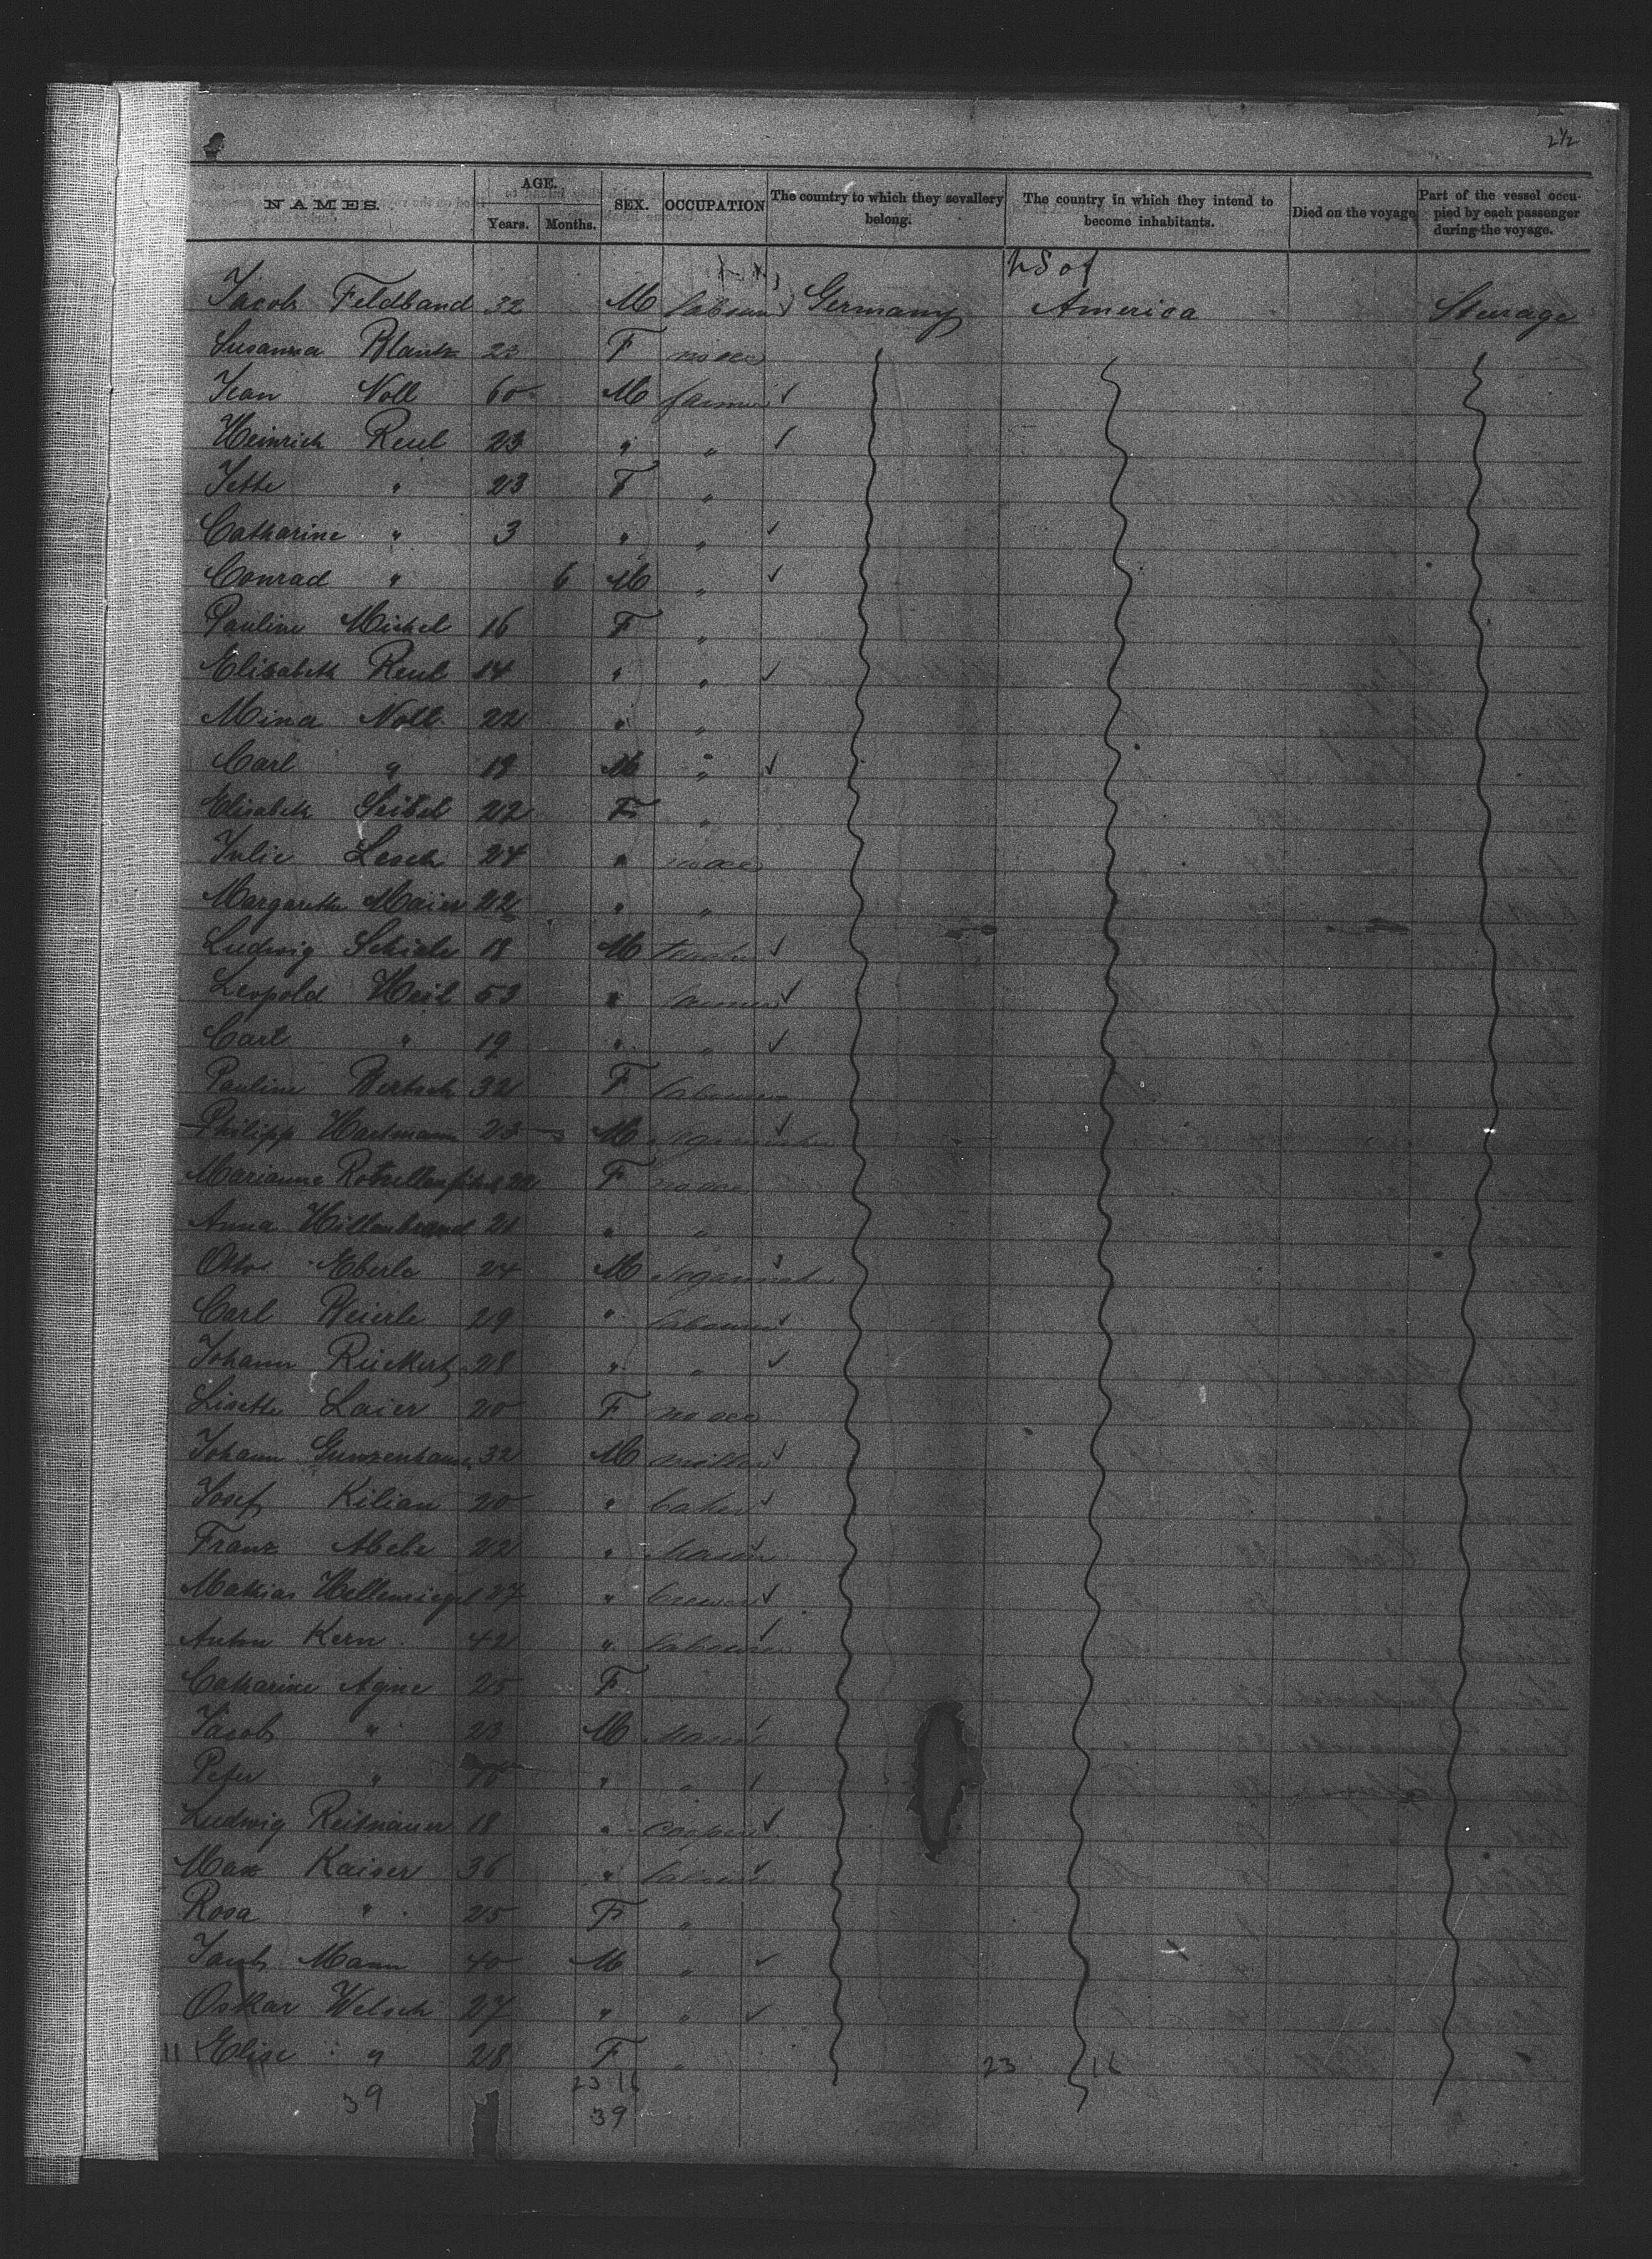 2 1/2
NAMES. AGE. Years. Months. SEX. OCCUPATION The country to which they sevallery belong. The country in which they intend to become inhabitants. Died on the voyage Part of the vessel occupied by each passenger during the voyage.
US of
Jacob Feldband 32 M labourer Germany America Steerage
Susanna 23 F no occ
Jean Noll 60 M farmer
Heinrich Reul 23 " "
Jette " 23 F "
Catharine " 3 " "
Conrad " 6 M "
Pauline Michel 16 F "
Elisabeth Reul 14 " "
Mina Noll 22 " "
Carl " 18 M "
Elisabeth Seibel 22 F "
Julie Lesch 24 " no occ
Margarethe Maier 22 " "
Ludwig Schiele 18 M
Leopold Heil 53 " farmer
Carl " 19 " "
Pauline Bertsch 32 F labourer
Philipp Hartmann 23 M
Marianne 22 F no occ
Anna Hillenbrand 21 " "
Otto Eberle 24 M
Carl Beierle 29 " labourer
Johann Rückert 28 " "
Lisette Laier 20 F no occ
Johann Gunzenhauser 32 M miller
Josef Kilian 20 " baker
Franz Abele 22 " Mason
Mathias Hellenriegel 27 " brewer
Anton Kern 42 " labourer
Catharine Agne 25 F
Jacob " 23 M Mason
Peter " 16 " "
Ludwig Reitnauer 18 "
Max Kaiser 36 " labourer
Rosa " 25 F "
Jacob Mann 40 M "
Oskar Welsch 27 " "
11 Elise " 28 F " 23 16
39 23 16
39